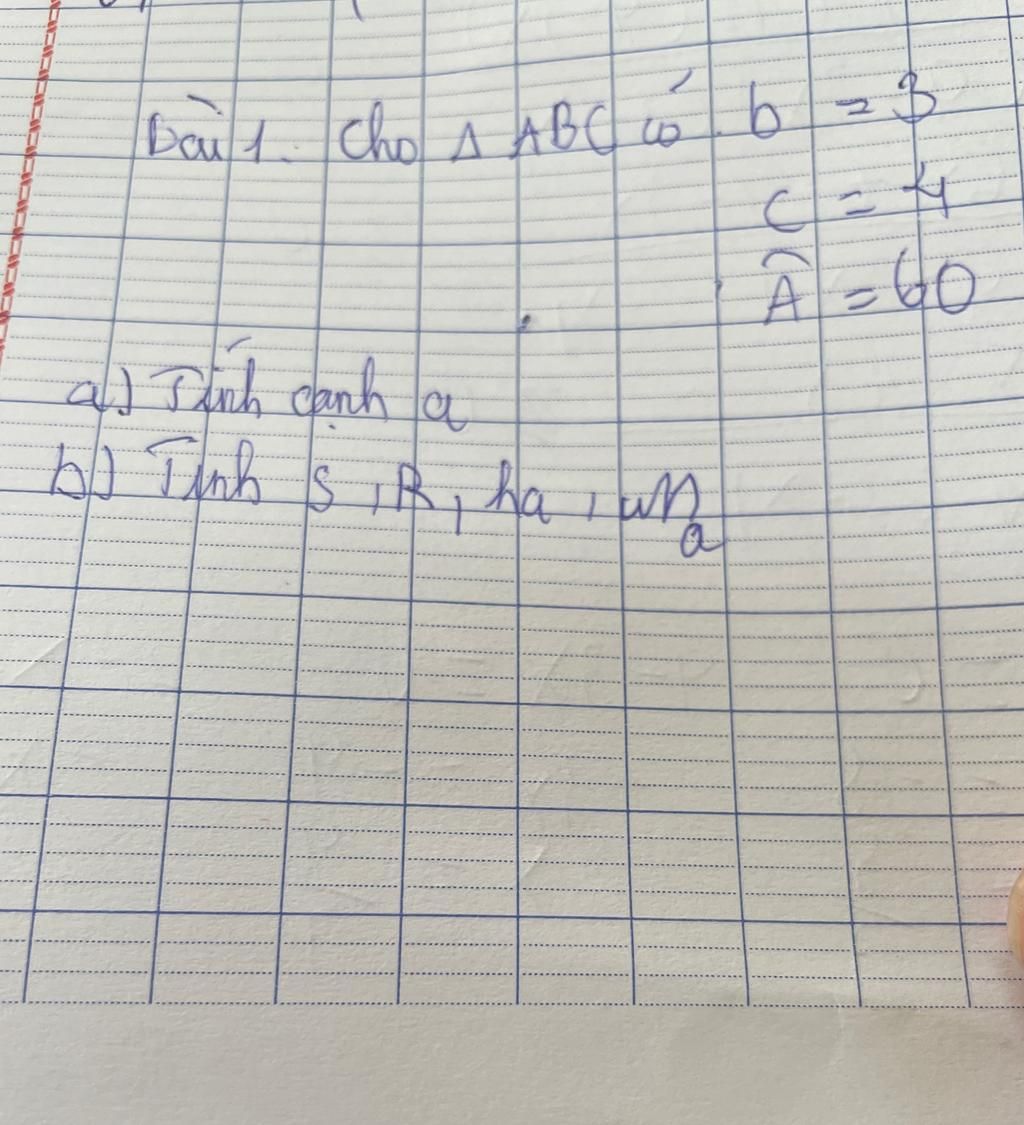 Bài 1. Cho Δ ABC có b = 3
c = 4
Â = 60
a) Tính cạnh a
b) Tính S, R, ha, ma